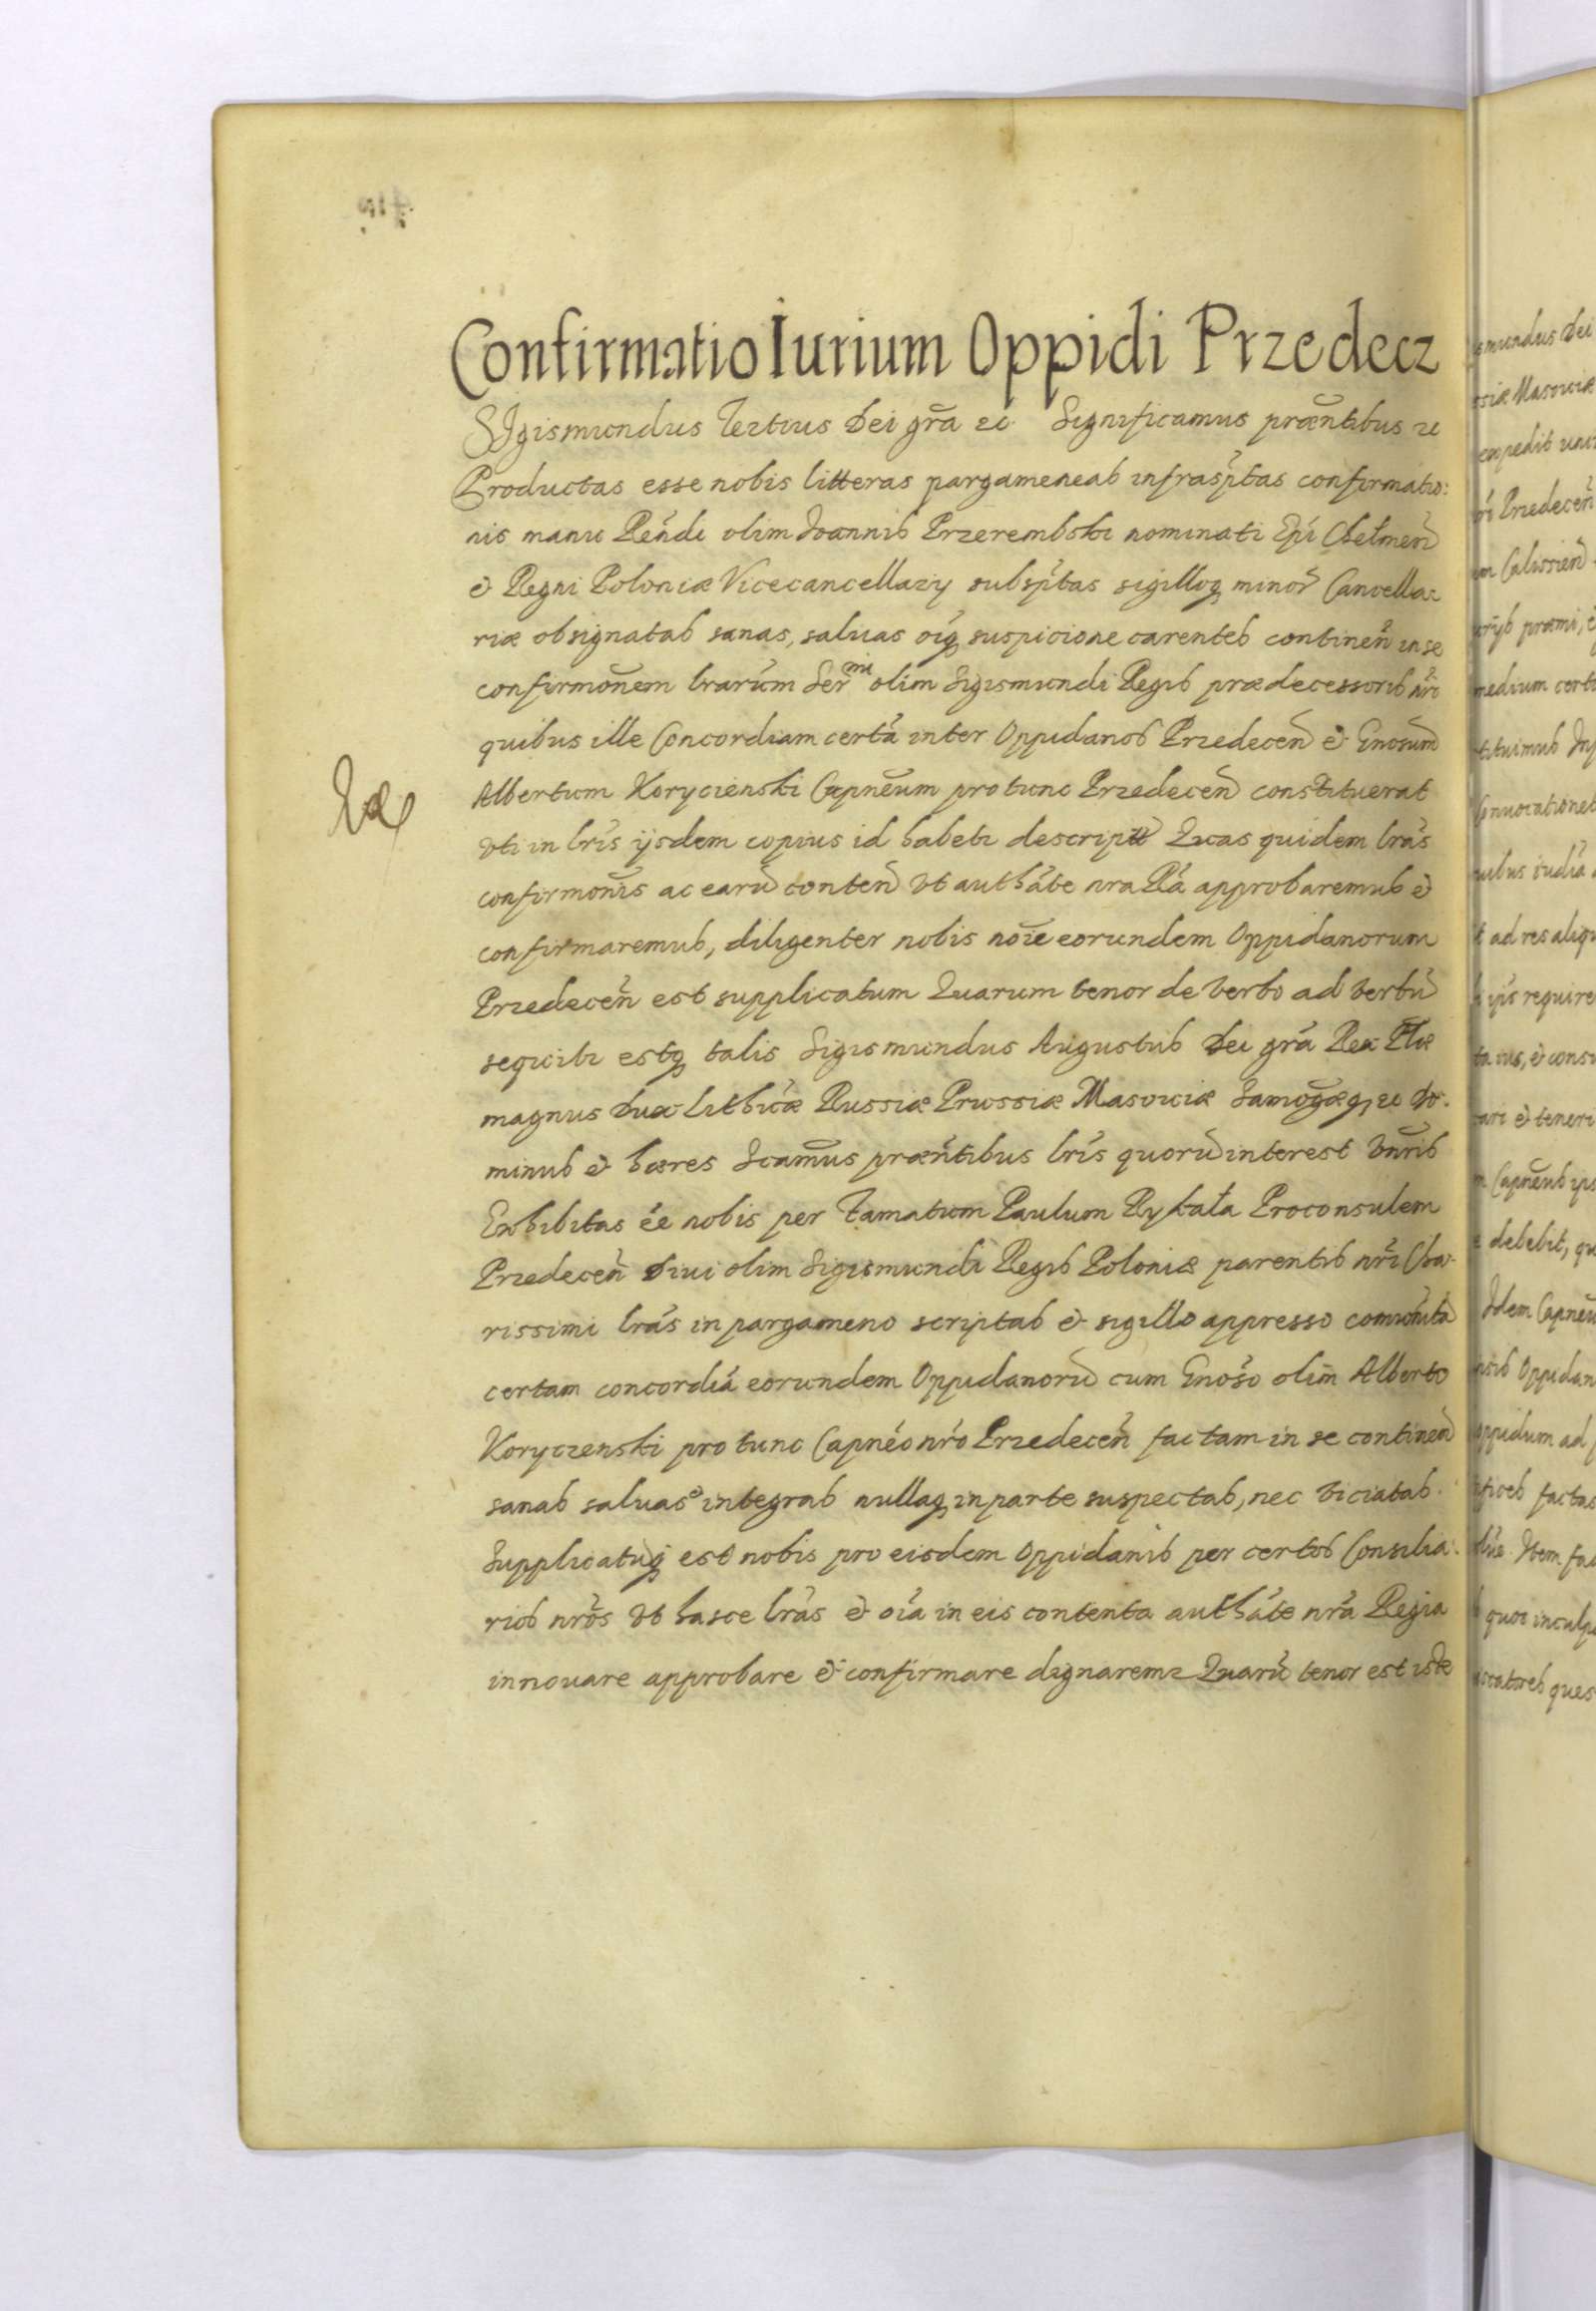 Confirmatio Iurium Oppidi Przedecz
SIgismundus Tertius Dei gr̃a ec. Significamus præn̄tibus ec
Productas esse nobis litteras pargameneas infrasp̃tas confirmatio:
nis manu R̃endi olim Ioannis Przerembski nominati Ep̃i Chelmeñ
et Regni Poloniæ Vicecancellarÿ subsp̃tas sigilloq minor̃ Cancella:
riæ obsignatas sanas, saluas oĩq suspicione carentes continen̄ in se
confirmon̄em lrarũm Ser mi olim Sigismundi Regis prædecessoris nr̃i
quibus ille Concordiam certã inter Oppidanos Przedeceñ et Gnosum̃
Albertum Korycienski Capnẽum pro tunc Przedeceñ constituerat
vti in lrĩs ijsdem copius id habetr descriptt Quas quidem lrãs
confirmon̄is ac earũ conteñ vt authãte nra Rã approbaremus et
confirmaremus, diligenter nobis noĩe eorundem Oppidanorum
Przedeceñ est supplicatum Quarum tenor de verbo ad verbũ
sequitr estq talis Sigismundus Augustus Dei grã Rex Plæ
magnus Dux Lithũæ Russiæ Prussiæ Masouiæ Samogæq, ec Do:
minus et hæres Scam̃us præñtibus lrĩs quorũ interest vnr̃is
Exhibitas ẽe nobis per famatum Paulum Rykała Proconsulem
Przedeceñ Diui olim Sigismundi Regis Poloniæ parentis nr̃i Cha:
rissimi lrãs in pargameno scriptas et sigillo appresso comunĩta
certam concordiã eorundem Oppidanorũ cum Gnosõ olim Alberto
Koryczenski pro tunc Capnẽo nrõ Przedeceñ factam in se contineñ
sanas saluas et integras nullaq in parte suspectas, nec viciatas.
Supplicatũq est nobis pro eisdem Oppidanis per certos Consilia:
rios nrõs vt hasce lrãs et oĩa in eis contenta authãte nrã Regia
innouare approbare et confirmare dignarem2 Quarũ tenor est iste